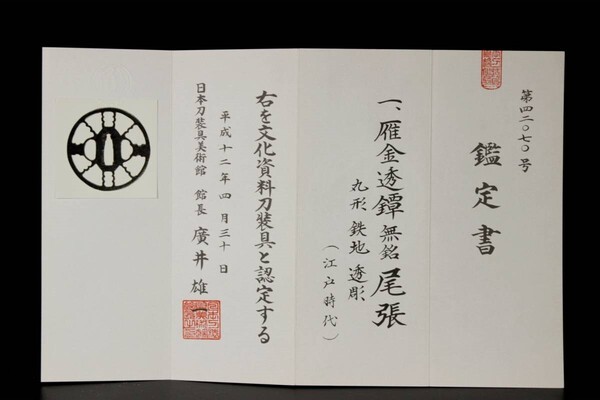 第四二〇七〇号
鑑定書
一、雁金透鐔 無銘 尾張
丸形 鉄地 透彫
(江戸時代)
右を文化資料刀装具と認定する
平成十二年四月三十日
日本刀装具美術館 館長 廣井雄一